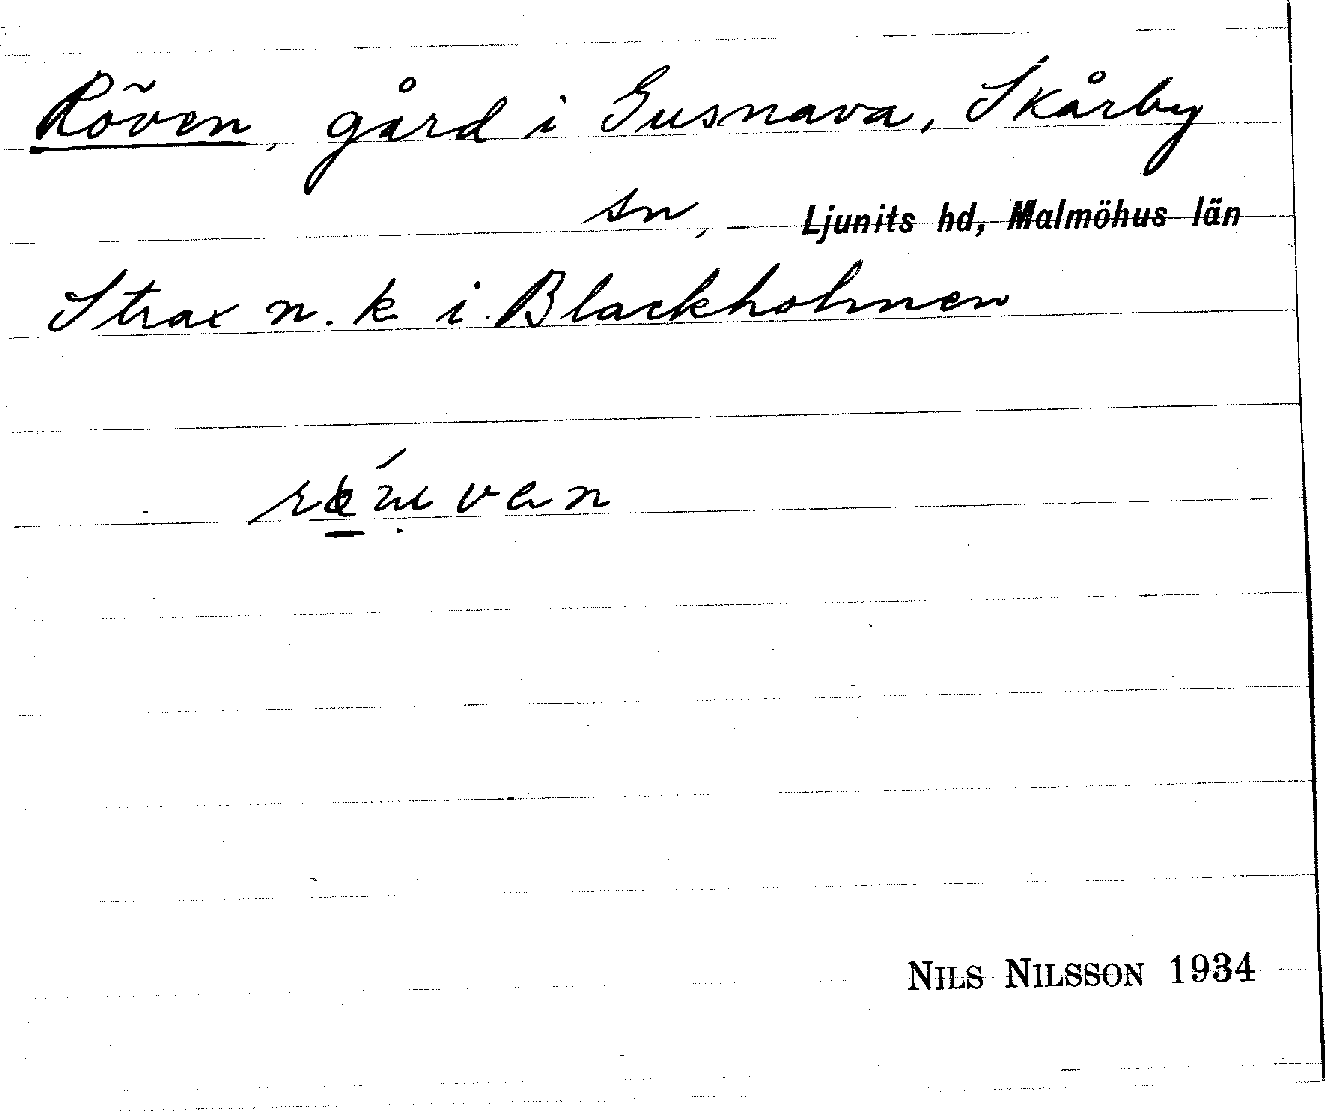 Röven, gård i Gusnava, Skårby
sn, Ljunits hd, Malmöhus län
Strax n. k i Blackholmen
NILS NILSSON 1934